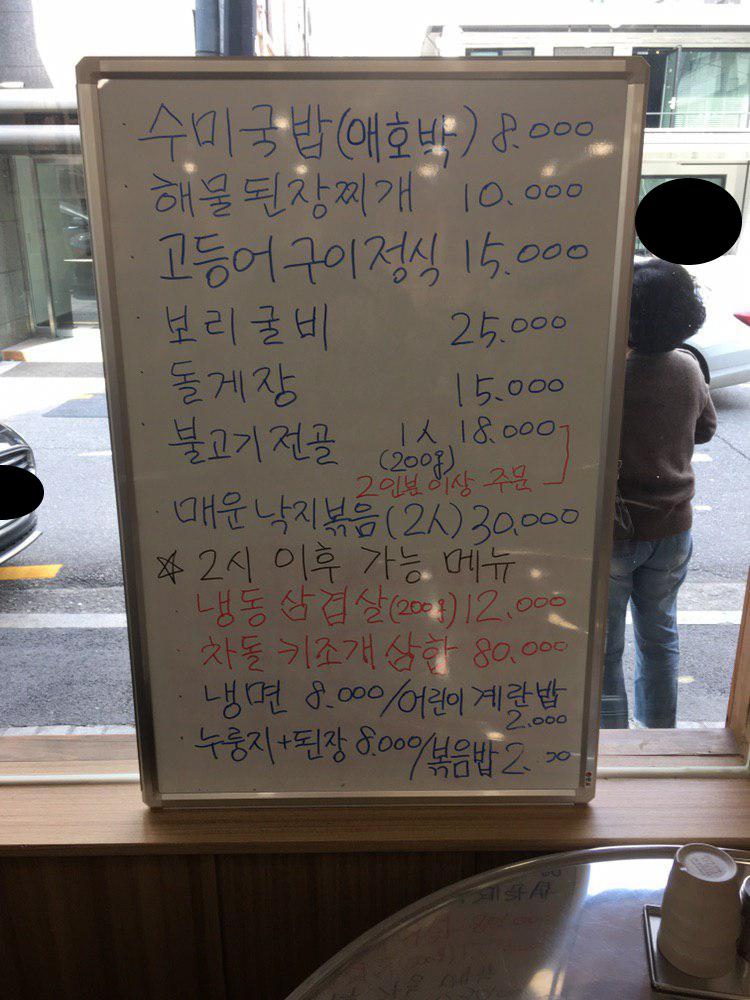 수미국밥(애호박) 8.000
해물된장찌개 10.000
고등어구이정식 15.000
보리굴비 25.000
돌게장 15.000
불고기전골 1人 18.000
(200g)
2인분이상 주문
매운낙지볶음(2人) 30.000
☆ 2시 이후 가능 메뉴
냉동삼겹살(200g) 12.000
차돌키조개삼합 80.000
냉면 8.000/어린이 계란밥
2.000
누룽지+된장 8.000/볶음밥